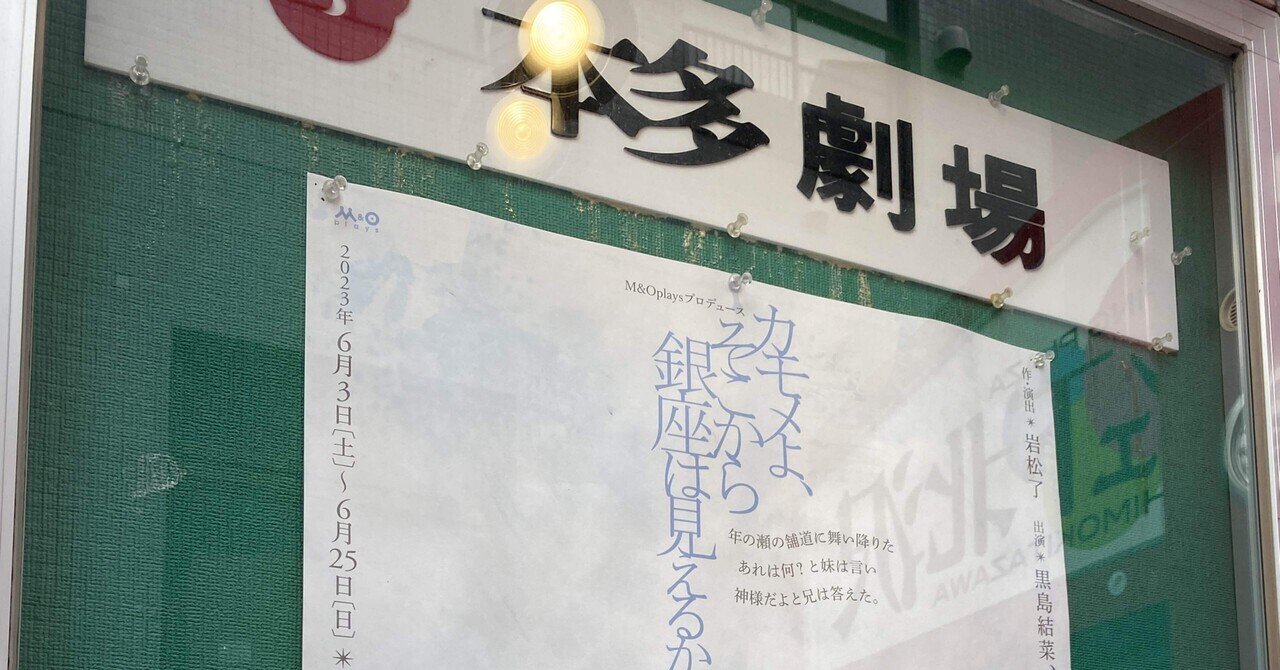 本多劇場
M&O
plays
M&Oplaysプロデュース
カモメよ、
そこから
銀座は見えるか
年の瀬の舗道に舞い降りた
あれは何?と妹は言い
神様だよと兄は答えた。
作・演出✴岩松了
出演✴黒島結菜、
2023年6月3日[土]〜6月25日[日]✴